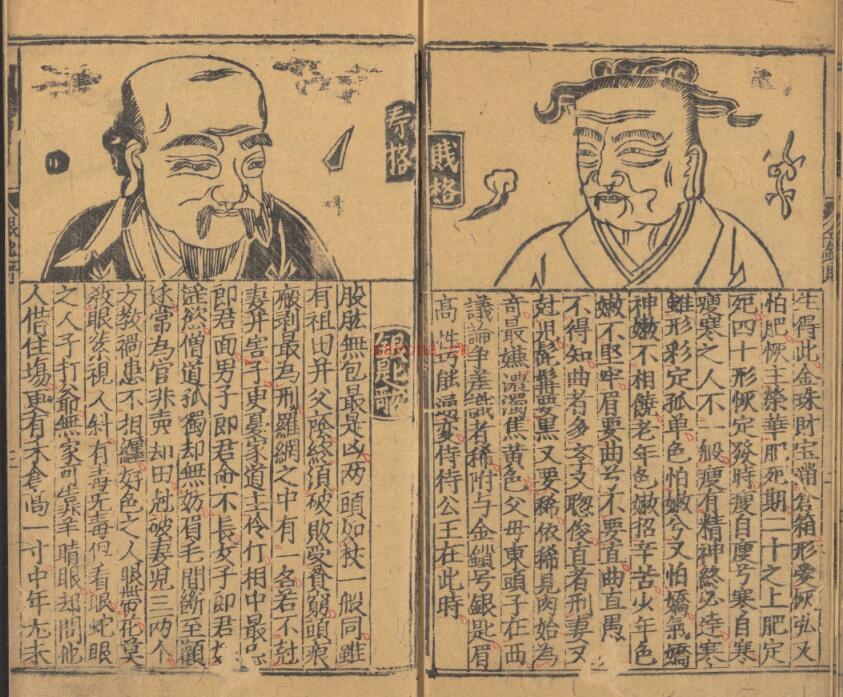 賎格
生得此金珠財宝滿倉箱形愛恢弘又
怕肥恢主榮華肥死期二十之上肥定
死四十形恢定發時瘦自瘦兮寒自寒
瘦寒之人不一般瘦有精神終必達寒
雖形彩定孤单色怕嫩兮又怕嬌氣嬌
神嫩不相饒老年色嫩招辛苦少年色
嫩不堅牢眉要曲兮不要直曲直愚
不得知曲者多孝又聡俊直者刑妻又
尅児髭髯要黑又要稀依稀見肉始為
奇最嫌濃濁焦黃色父母東頭子在西
議論争差識者稀附与金鎖号銀匙眉
高性能通変侍待公王在此時
寿格
銀匙歌
股肱無包最是凶两頭如杖一般同雖
有祖田并父廕終須破敗受貧窮頭痕
瘢剥最為刑羅網之中有一名若不尅
妻并害子東臺家道主伶仃相中最忌
郎君面男子郎君命不长女子郎君好
婬慾僧道孤獨却無妨眉毛間断至顴
邊常為官非壳却田尅破妻児三两个
方教禍患不相纏好色之人眼帶花莫
教眼紧視人斜有毒无毒但看眼蛇眼
之人子打爺無家可靠羊睛眼却問他
人借住塲更有禾倉高一寸中年尢未